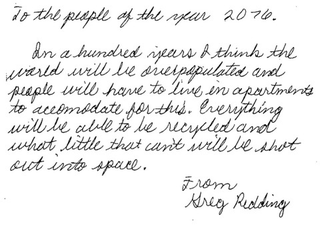 To the people of the year 2076.
In a hundred years I think the
world will be overpopulated and
people will have to live in apartments
to accomodate for this. Everything
will be able to be recycled and
what little that can't will be shot
out into space.
From
Greg Redding